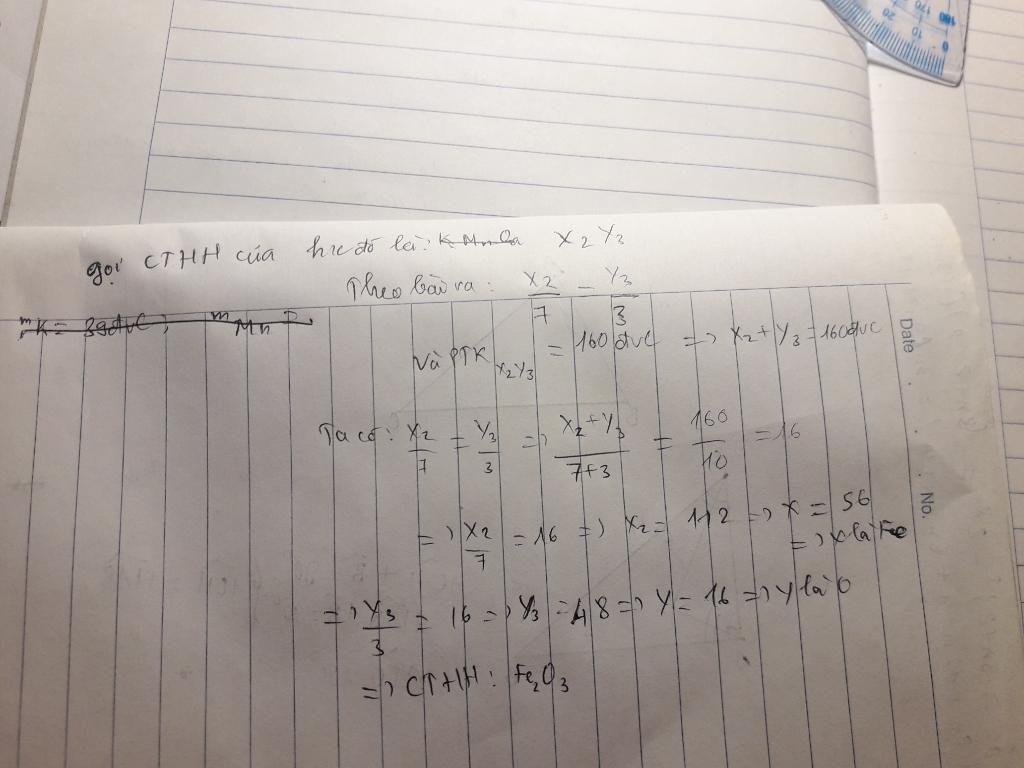 gọi CTHH của h/c đó là: K Mn la X₂Y₃
Theo bài ra: X₂/7 = Y₃/3
mK = 39đvC; mMn =
Và PTK X₂Y₃ = 160 đvC => X₂ + Y₃ = 160đvC
Ta có: X₂/7 = Y₃/3 => X₂+Y₃/7+3 = 160/10 = 16
=> X₂/7 = 16 => X₂ = 112 => X = 56
=> X là Fe
=> Y₃/3 = 16 => Y₃ = 48 => Y = 16 => Y là O
=> CTHH: Fe₂O₃
Date
No.
120
110
180
170
20
10
0